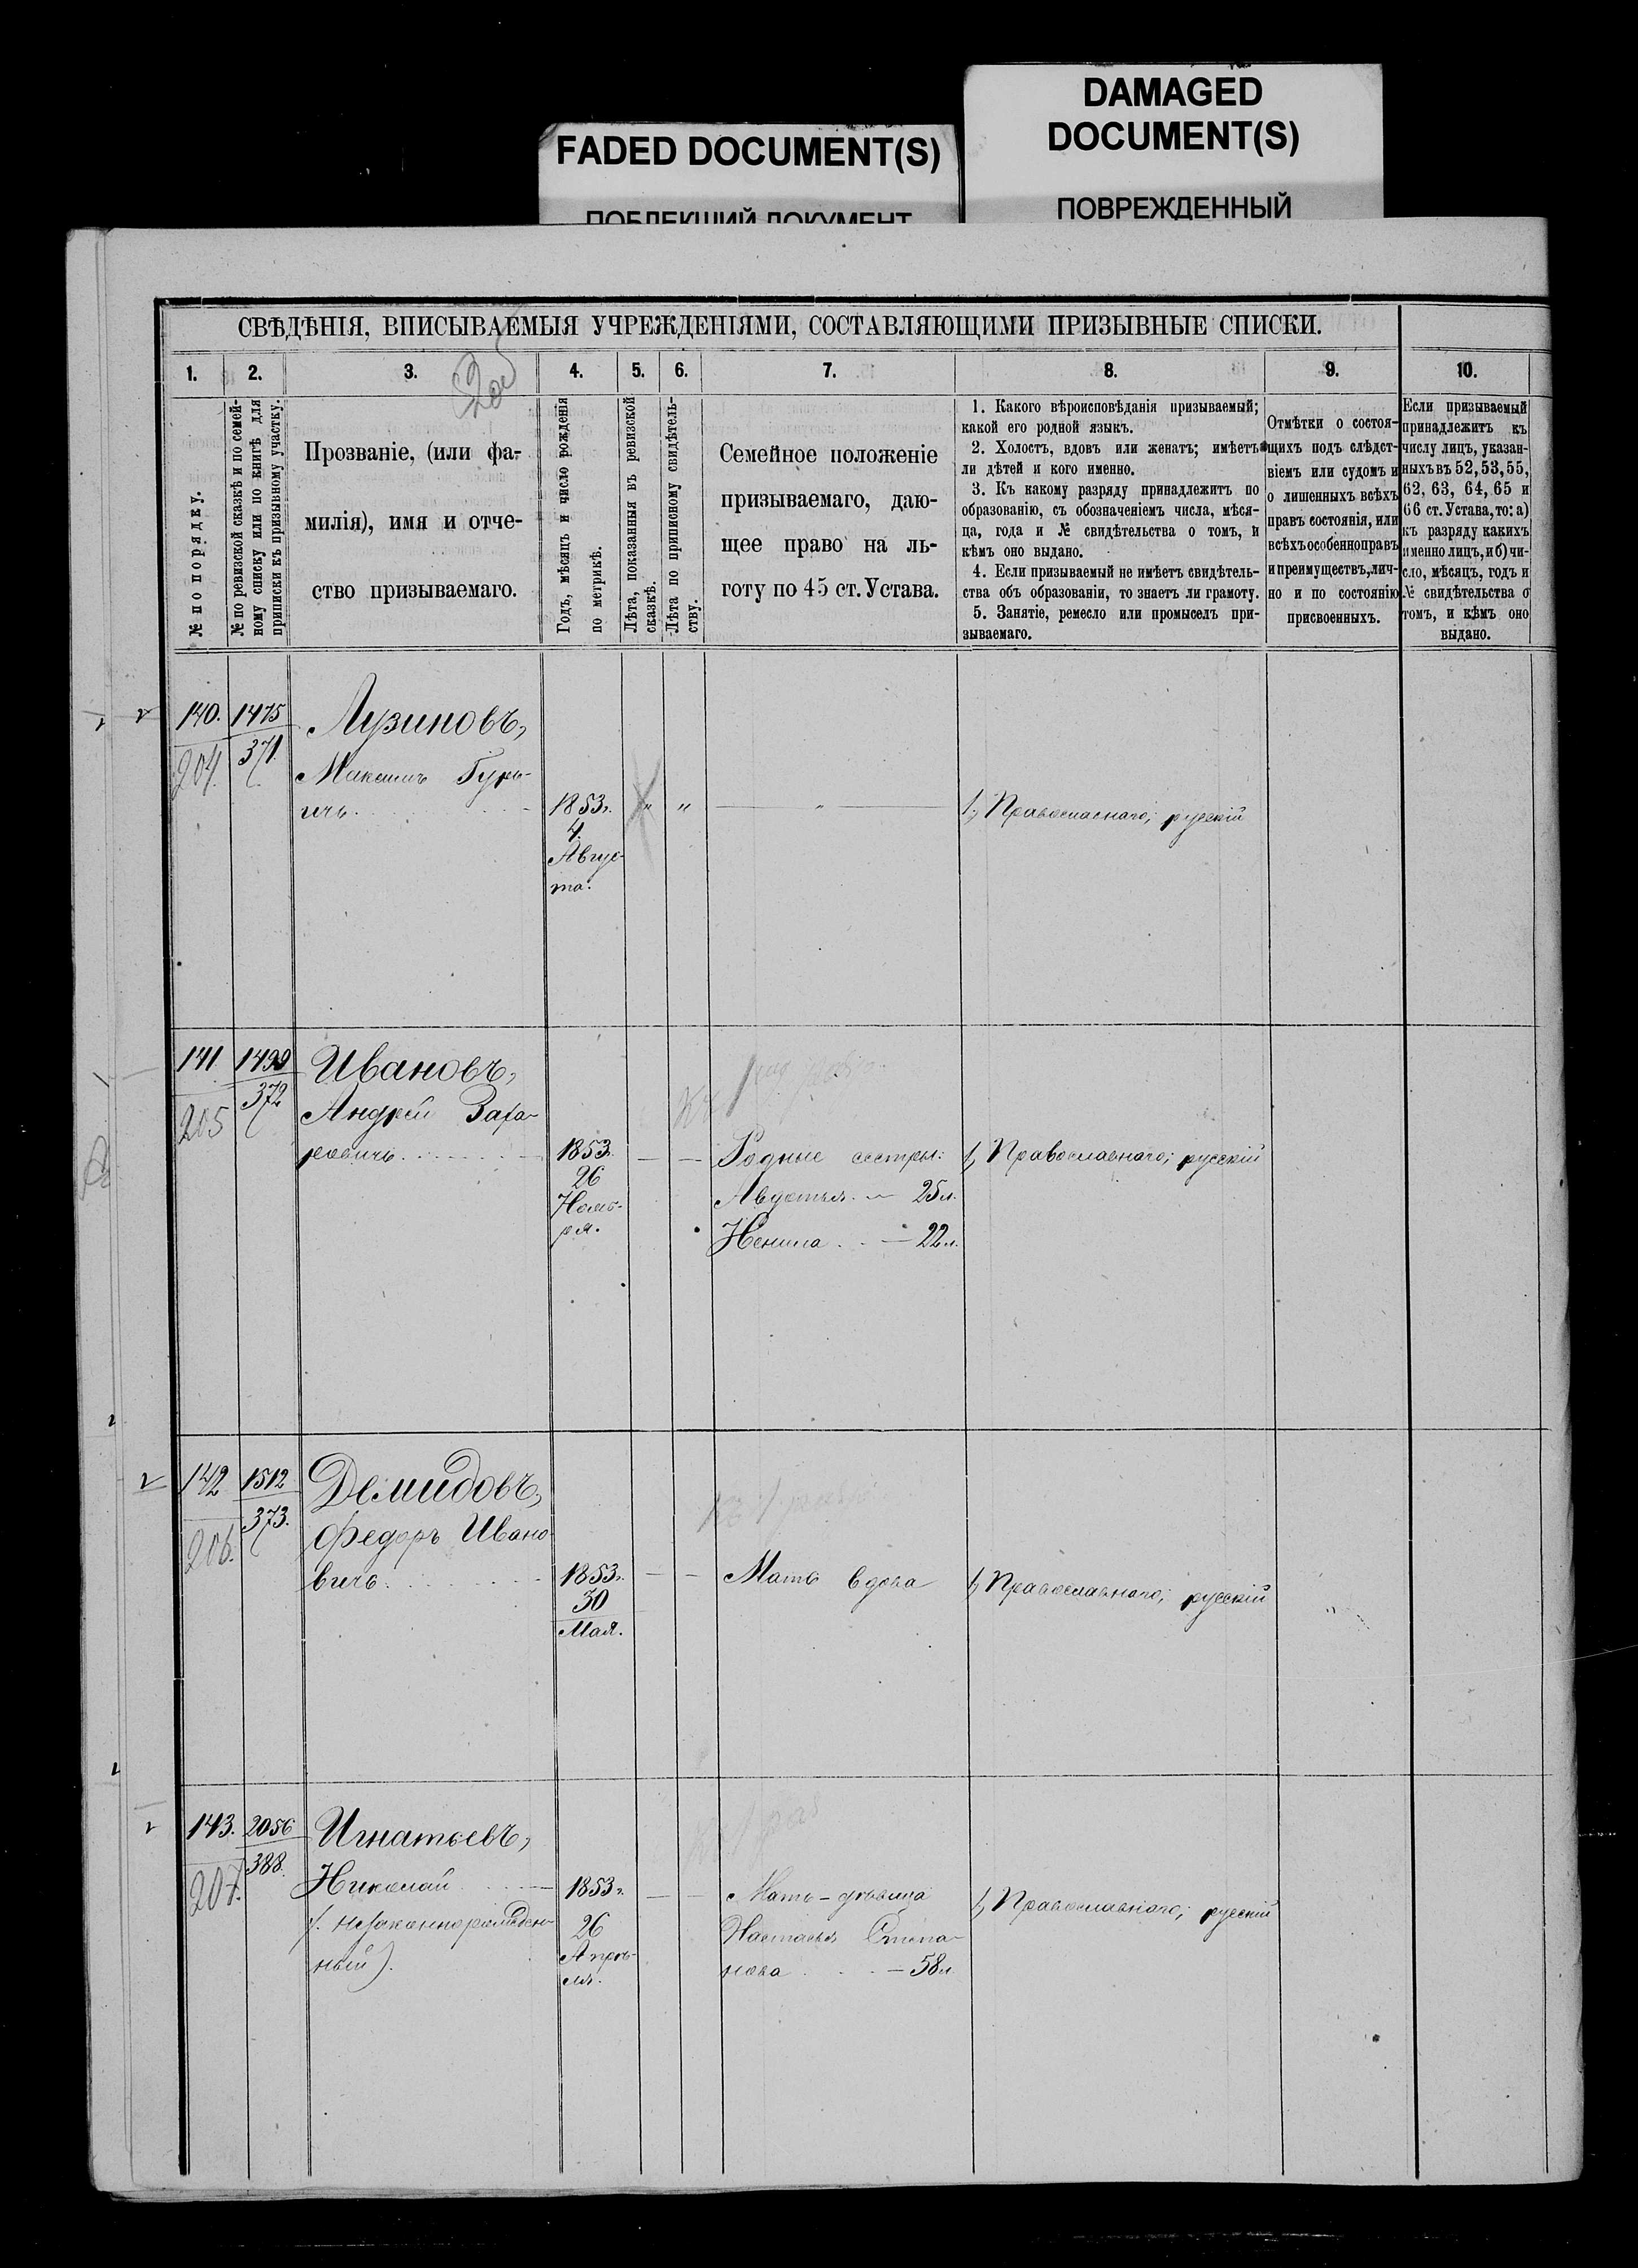 DAMAGED
DOCUMENT(S)
FADED DOCUMENT(S)
ПОВРЕЖДЕННЫЙ
ПОБЛЕКШИЙ ДОКУМЕНТ
СВѢДѢНІЯ, ВПИСЫВАЕМЫЯ УЧРЕЖДЕНІЯМИ, СОСТАВЛЯЮЩИМИ ПРИЗЫВНЫЕ СПИСКИ.
1. 2. 3. 4. 5. 6. 7. 8. 9. 10.
№ по порядку.
№ по ревизской сказкѣ и по семей-
ному списку или по книгѣ для
приписки къ призывному участку.
Прозваніе, (или фа-
милія), имя и отче-
ство призываемаго.
Годъ, мѣсяцъ и число рожденія
по метрикѣ.
Лѣта, показанныя въ ревизской
сказкѣ.
Лѣта по приписному свидѣтель-
ству.
Семейное положеніе
призываемаго, даю-
щее право на ль-
готу по 45 ст. Устава.
1. Какого вѣроисповѣданія призываемый;
какой его родной языкъ.
2. Холостъ, вдовъ или женатъ; имѣетъ
ли дѣтей и кого именно.
3. Къ какому разряду принадлежитъ по
образованію, съ обозначеніемъ числа, мѣся-
ца, года и № свидѣтельства о томъ, и
кѣмъ оно выдано.
4. Если призываемый не имѣетъ свидѣтель-
ства объ образованіи, то знаетъ ли грамоту.
5. Занятіе, ремесло или промыселъ при-
зываемаго.
Отмѣтки о состоя-
щихъ подъ слѣдст-
віемъ или судомъ и
о лишенныхъ всѣхъ
правъ состоянія, или
всѣхъ особенно правъ
и преимуществъ, лич-
но и по состоянію
присвоенныхъ.
Если призываемый
принадлежитъ къ
числу лицъ, указан-
ныхъ въ 52, 53, 55,
62, 63, 64, 65 и
66 ст. Устава, то: а)
къ разряду какихъ
именно лицъ, и б) чи-
сло, мѣсяцъ, годъ и
№ свидѣтельства о
томъ, и кѣмъ оно
выдано.
140. 1475 Лузиновъ,
204. 371. Максимъ Гурь-
ичъ. 1853г. " " " 1, Православнаго; русскій
4.
Авгус-
та.
141 1499 Ивановъ,
205 372 Андрей Заха-
ровичъ. 1853г. — — Родные сестры: 1, Православнаго; русскій
26 Авдотья — 25 л.
Нояб- Ненила — 22 л.
ря.
142 1512 Демидовъ,
206. 373. Федоръ Ивано-
вичъ. 1853г. — — Мать вдова 1, Православнаго; русскій
30
Мая.
143. 2056 Игнатьевъ,
207. 388. Николай 1853г. — — Мать-дѣвица 1, Православнаго; русскій
(незаконнорожден- 26 Настасья Степа-
ный). Апрѣ- нова — 58 л.
ля.